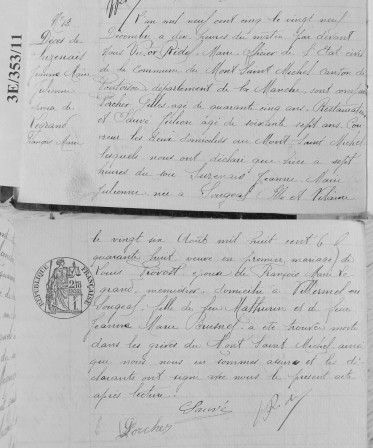 N° 12
Décès de
Suzenais
Jeanne Marie
Julienne
femme de
Legrand
François Marie
3E/353/11
L'an mil neuf cent cinq le vingt neuf
Décembre à dix heures du matin par devant
Nous Victor Ridel, Maire officier de l'Etat civil
de la commune du Mont Saint Michel canton de
Pontorson département de la Manche, sont comparus
Porcher Gilles âgé de quarante cinq ans Restaurateur
et Sauvé âgé de soixante sept ans
tous les deux domiciliés au Mont Saint Michel
lesquels nous ont déclaré que hier à sept
heures du soir Suzenais Jeanne Marie
Julienne née à Sougeal Ille et Vilaine
le vingt six Août mil huit cent
quarante huit veuve en premier mariage de
Louis Provost épouse de François Marie Le
grand, menuisier, domiciliée à
Sougeal fille de feu Mathurin et de feue
Jeanne Marie a été trouvée morte
dans les grèves du Mont Saint Michel ainsi
que nous nous en sommes assuré et les dé
clarants ont signé avec nous le présent acte
après lecture.
Sauvé
Porcher
RÉPUBLIQUE FRANÇAISE